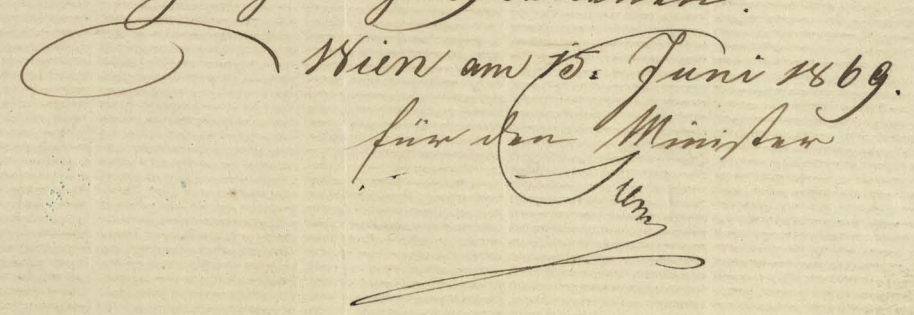 Wien am 15. Juni 1869.
für den Minister